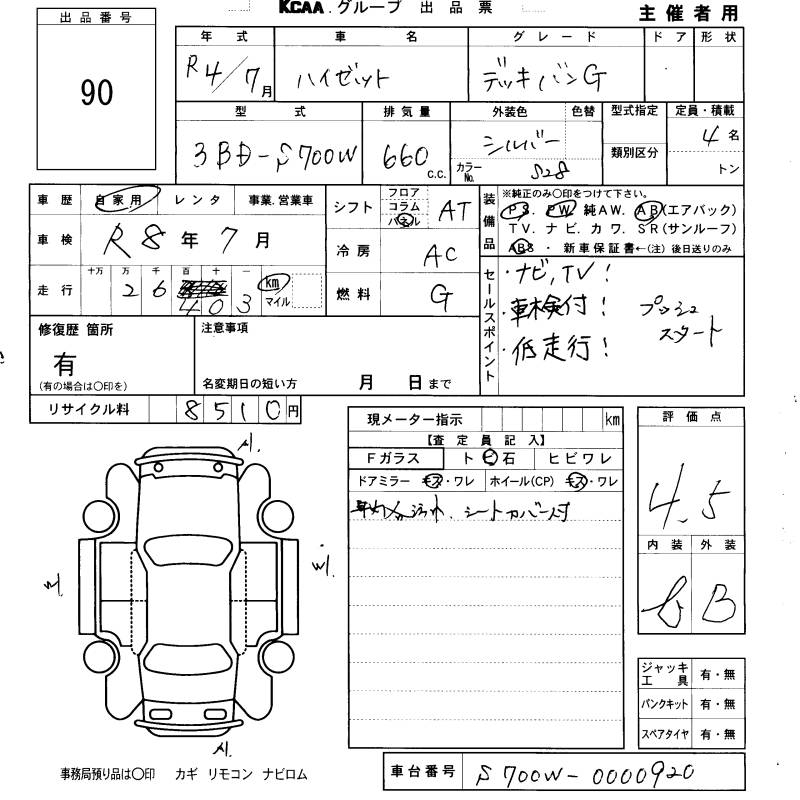 KCAA グループ 出品票
主催者用
出品番号
90
年式 車名 グレード ドア 形状
R4/7月 ハイゼット デッキバンG
型式 排気量 外装色 色替 型式指定 定員・積載
3BD-S700W 660 c.c. シルバー 4名
カラーNo. S28 類別区分 トン
車歴 自家用 レンタ 事業.営業車
シフト フロア コラム パネル AT
装備品 ※純正のみ○印をつけて下さい。
PS. PW. 純AW. AB(エアバック)
TV. ナビ. カワ. SR(サンルーフ)
ABS ・ 新車保証書←(注)後日送りのみ
車検 R8年7月
冷房 AC
走行 十万 万 千 百 十 一
2 6 4 0 3 km マイル
燃料 G
セールスポイント
・ナビ,TV!
・車検付! プッシュ
・低走行! スタート
修復歴 箇所
有
(有の場合は○印を)
注意事項
名変期日の短い方 月 日まで
リサイクル料 8510円
現メーター指示 km
【査定員記入】
Fガラス トビ石 ヒビワレ
ドアミラー キズ・ワレ ホイール(CP) キズ・ワレ
シートカバー付
評価点
4.5
内装 外装
B
ジャッキ工具 有・無
パンクキット 有・無
スペアタイヤ 有・無
事務局預り品は○印 カギ リモコン ナビロム
車台番号 S700W-0000920